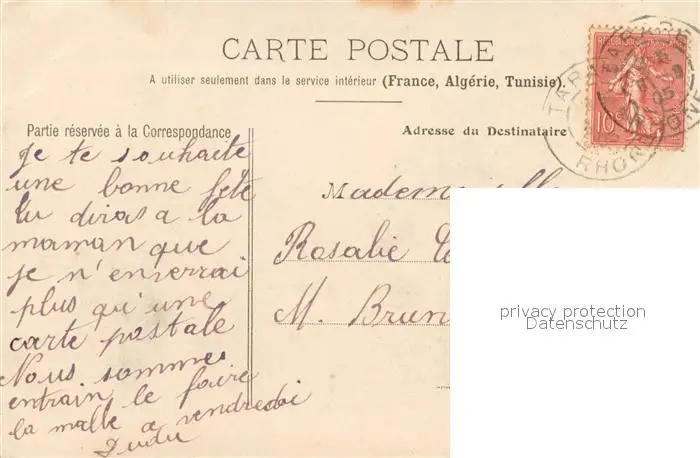 CARTE POSTALE
A utiliser seulement dans le service intérieur (France, Algérie, Tunisie).
Partie réservée à la Correspondance
Adresse du Destinataire
Je te souhaite
une bonne fête
tu diras a la
maman que
je n'enverrai
plus qu'une
carte postale
Nous sommes
entrain le faire
la malle a vendredi
Mademoiselle
Rosalie
M. Brun
TARARE
RHONE
10
privacy protection
Datenschutz